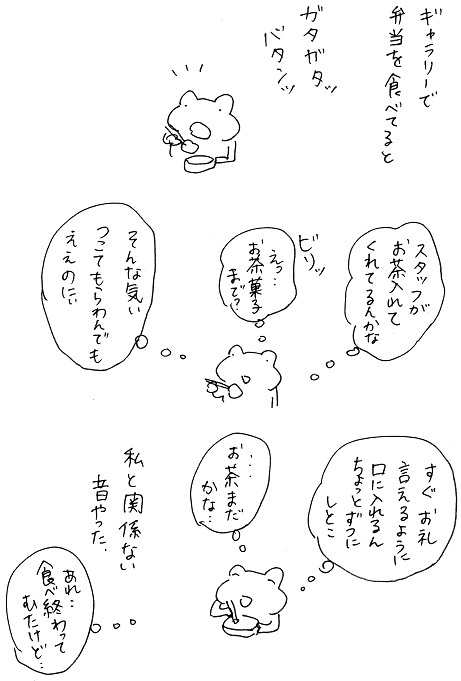 ギャラリーで
弁当を食べてると
ガタガタッ
バタンッ
スタッフが
お茶入れて
くれてるんかな
ビリッ
えっ…
お茶菓子
まで?
そんな気ぃ
つこてもらわんでも
ええのにぃ
すぐお礼
言えるように
口に入れるん
ちょっとずつに
しとこ
…
お茶まだ
かな…
私と関係ない
音やった。
あれ…
食べ終わって
むたけど…